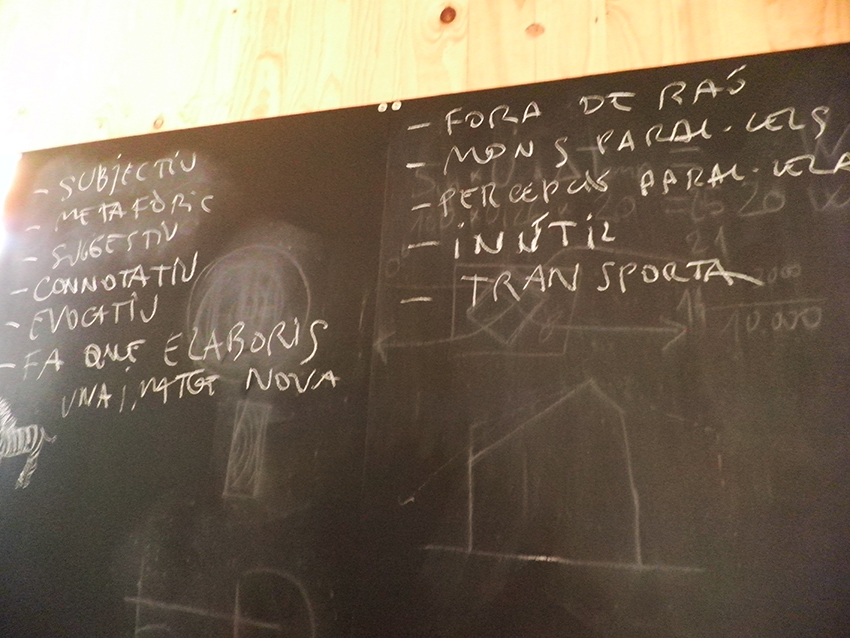 - SUBJECTIU
- METAFÒRIC
- SUGGESTIU
- CONNOTATIU
- EVOCATIU
- FA QUE ELABORIS
UNA IMATGE NOVA
- FORA DE RAÓ
- MONS PARAL·LELS
- PERCEPCIÓ PARAL·LELA
- INÚTIL
- TRANSPORTA
20 W
21
10.000